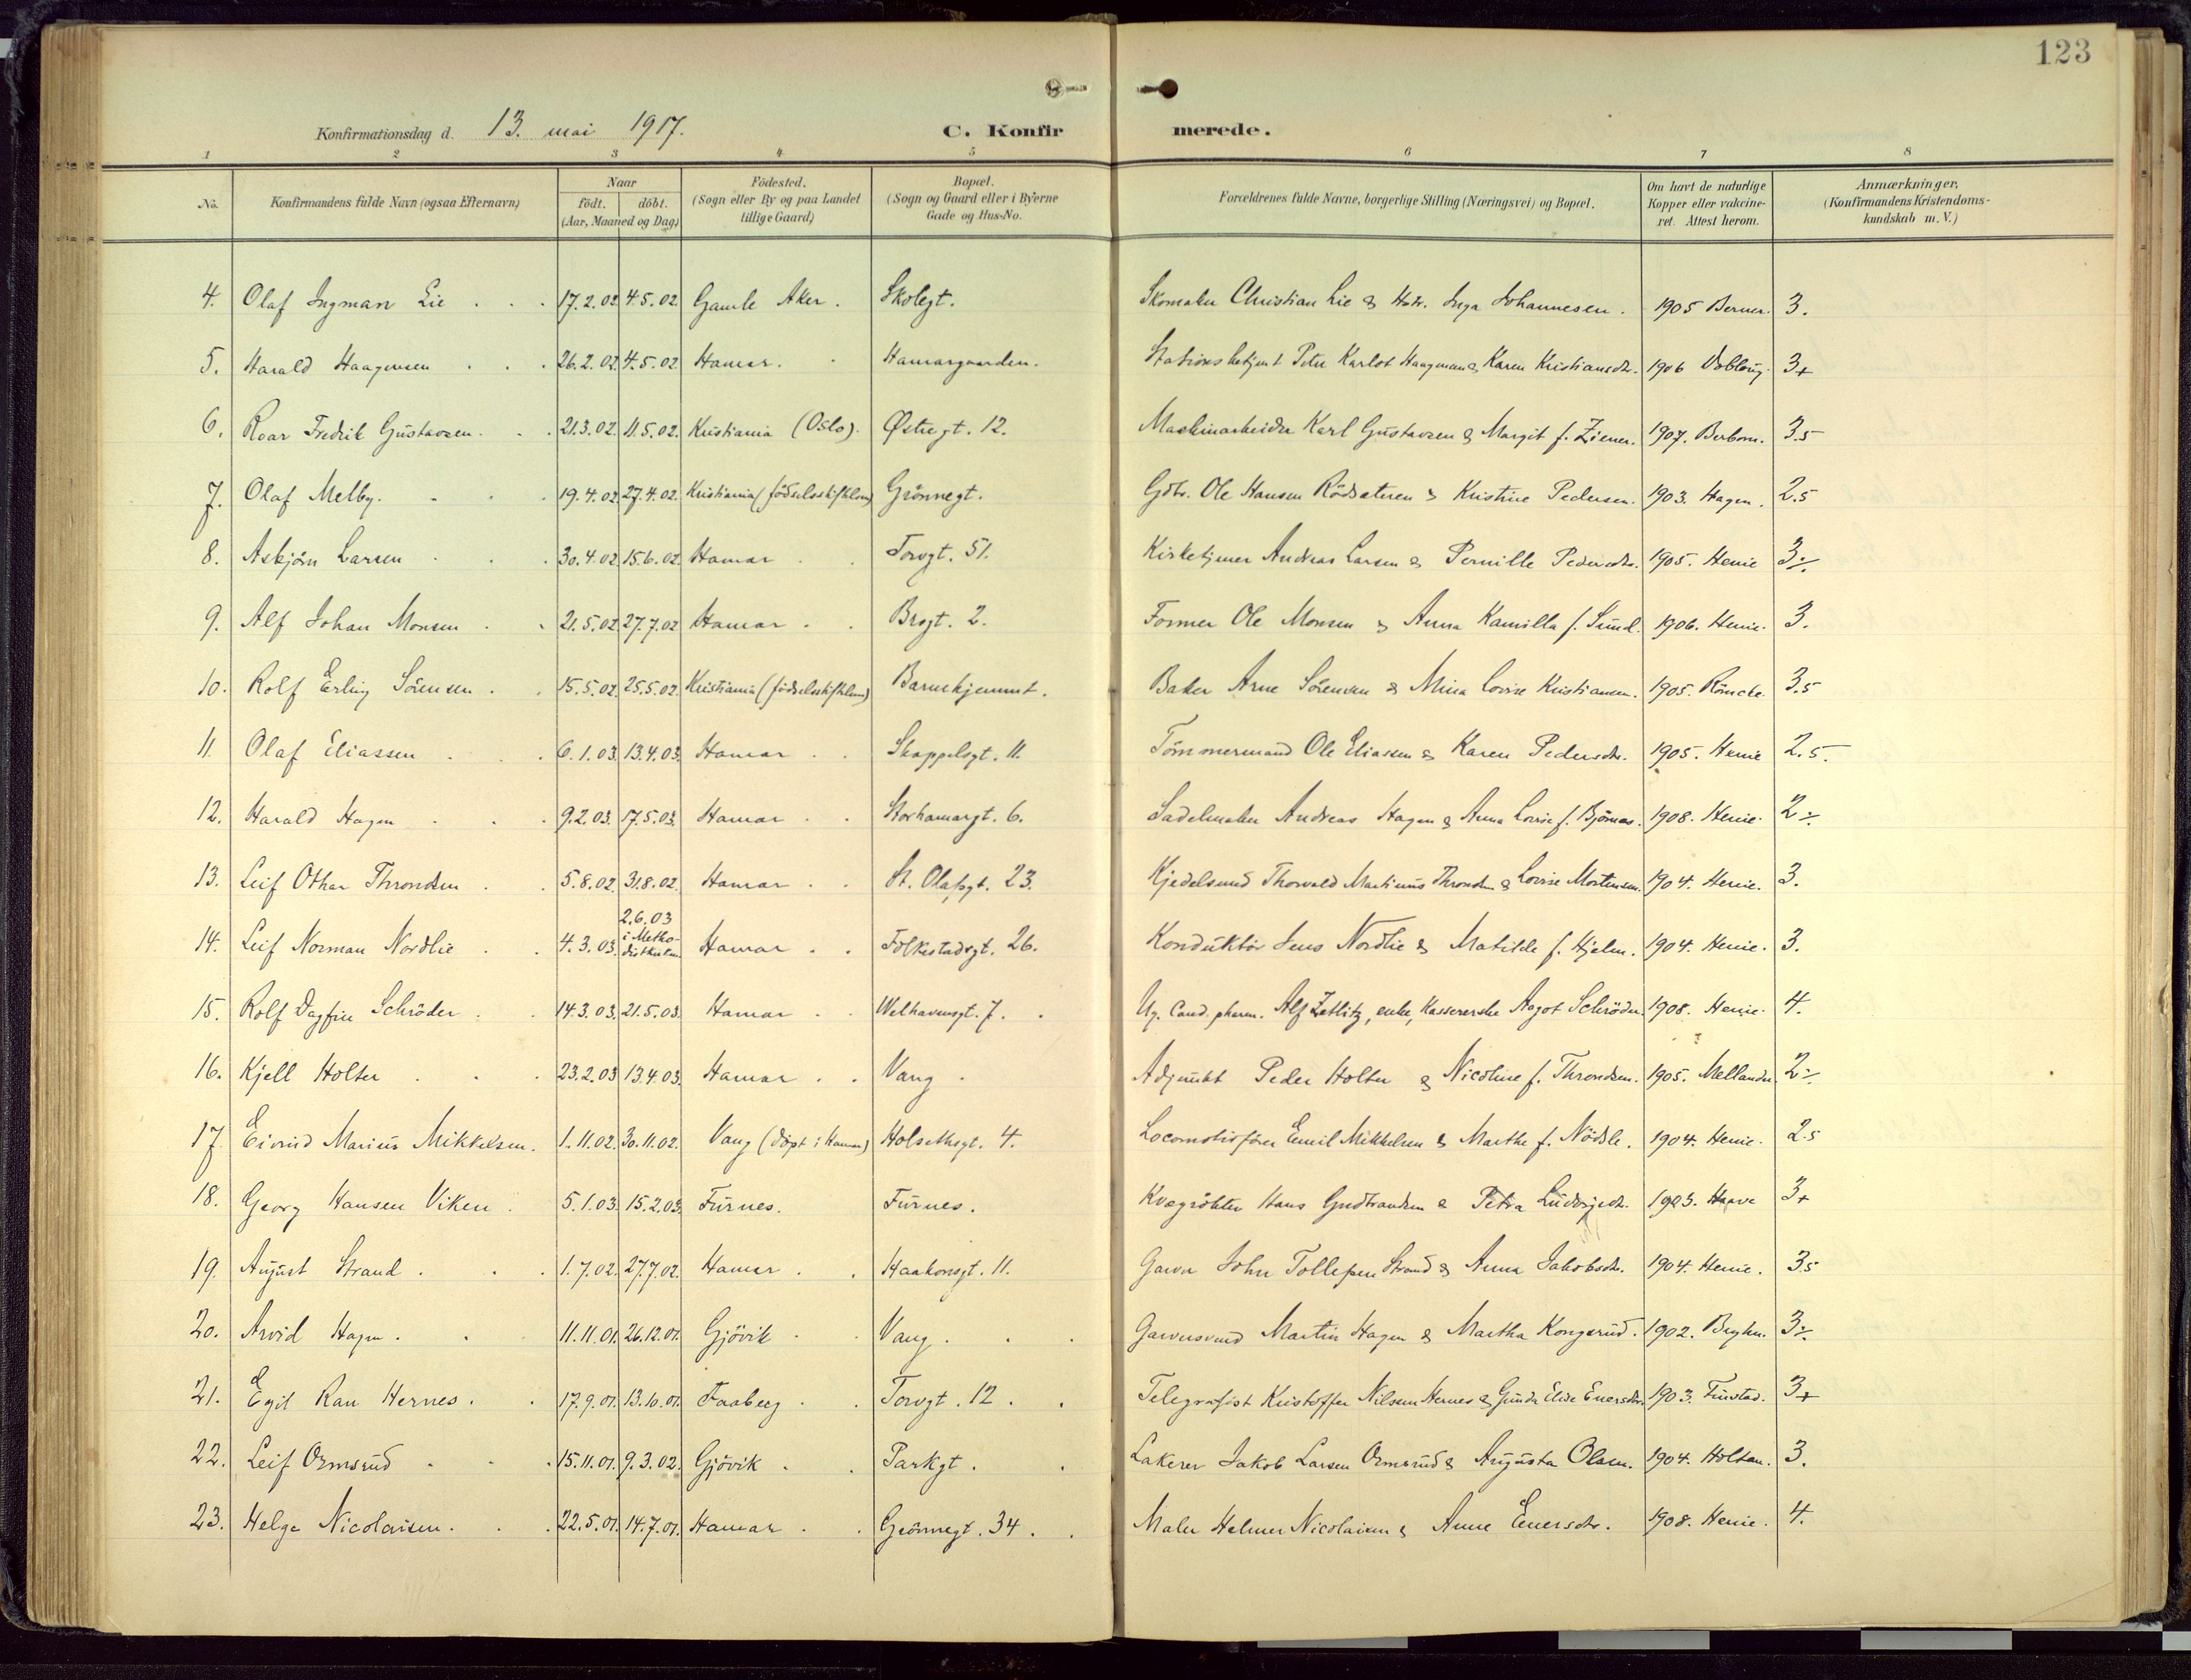 123
Konfirmationsdag d. 13. mai 1917. C. Konfirmerede.
1 2 3 4 5 6 7 8
No. Konfirmandens fulde Navn (ogsaa Efternavn) Naar født. døbt. (Aar, Maaned og Dag) Fødested. (Sogn eller By og paa Landet tillige Gaard) Bopæl. (Sogn og Gaard eller i Byerne Gade og Hus-No. Forældrenes fulde Navne, borgerlige Stilling (Næringsvei) og Bopæl. Om havt de naturlige Kopper eller vakcineret. Attest herom. Anmærkninger, (Konfirmandens Kristendomskundskab m. V.)
4. Olaf Ingman Lie 17.2.02 4.5.02 Gamle Aker. Skolegt. Skomaker Christian Lie & Hstr. Inga Johannesen. 1905 Berner. 3.
5. Harald Haagensen 26.2.02. 4.5.02 Hamar. Hamargaarden. Stationsbetjent Peter Karlot Haagensen & Karen Kristiansdtr. 1906 3+
6. Roar Fredrik Gustavsen. 21.3.02. 11.5.02. Kristiania (Oslo). Østregt. 12. Maskinarbeider Karl Gustavsen & Margit f. Ziener. 1907. 3.5
7. Olaf Melby. 19.4.02 27.4.02. Kristiania (fødselsstiftelsen) Grønnegt. Gdbr. Ole Hansen Rødsæteren & Kristine Pedersen. 1903. Hagen. 2.5
8. Asbjørn Larsen 30.4.02 15.6.02. Hamar Torvgt. 51. Kirketjener Andreas Larsen & Pernille Pedersdtr. 1905. Henie 3÷
9. Alf Johan Monsen 21.5.02 27.7.02 Hamar Brogt. 2. Former Ole Monsen & Anna Kamilla f. Sund. 1906. Henie. 3.
10. Rolf Erling Sørensen. 15.5.02. 25.5.02. Kristiania (fødselsstiftelsen) Barnehjemmet. Baker Arne Sørensen & Mina Lovise Kristiansen. 1905. Rømcke 3.5
11. Olaf Eliassen 6.1.03. 13.4.03. Hamar Skappelsgt. 11. Tømmermand Ole Eliassen & Karen Pedersdtr. 1905. Henie 2.5.
12. Harald Hagen 9.2.03. 17.5.03. Hamar Storhamargt. 6. Sadelmaker Andreas Hagen & Anna Lovise f. Bjørnaas. 1908. Henie. 2÷
13. Leif Othar Throndsen 5.8.02. 31.8.02. Hamar St. Olafsgt. 23. Kjedelsmed Thorvald Martinius Throndsen & Lovise Mortensen. 1904. Henie. 3.
14. Leif Norman Nordlie 4.3.03. 2.6.03 i Methodistkirken. Hamar Folkestadsgt. 26. Konduktør Jens Nordlie & Matilde f. Hjelm. 1904. Henie. 3.
15. Rolf Dagfin Schrøder 14.3.03. 21.5.03. Hamar Welhavensgt. 7. Ug. Cand. pharm. Alf Zetlitz, enke, Kassererske Aagot Schrøder 1908. Henie. 4.
16. Kjell Holter 23.2.03 13.4.03. Hamar Vang Adjunkt Peder Holter & Nicoline f. Throndsen. 1905. Mellander 2÷
17. Eivind Marius Mikkelsen. 1.11.02. 30.11.02. Vang (døpt i Hamar) Holsethsgt. 4. Locomotivfører Emil Mikkelsen & Marthe f. Nødsle. 1904. Henie. 2.5
18. Georg Hansen Viken 5.1.03. 15.2.03. Furnes. Furnes. Kvægrøkter Hans Gudbrandsen & Petra Ludvigsdtr. 1903. 3+
19. August Strand 1.7.02. 27.7.02. Hamar Haakonsgt. 11. Garver John Tollefsen Strand & Anna Jakobsdtr. 1904. Henie. 3.5
20. Arvid Hagen. 11.11.01. 26.12.01. Gjøvik Vang. Garversvend Martin Hagen & Martha Kongsrud. 1902. 3÷
21. Egil Ran Hernes. 17.9.01. 13.10.01. Faaberg Torvgt. 12. Telegrafist Kristoffer Nilsen Hernes & Gunda Elise Enersdtr. 1903. Finstad. 3+
22. Leif Ormsrud 15.11.01. 9.3.02. Gjøvik Parkgt. Lakerer Jakob Larsen Ormsrud & Augusta Olsen. 1904. Holtan. 3.
23. Helge Nicolaisen. 22.5.01. 14.7.01. Hamar Grønnegt. 34. Maler Helmer Nicolaisen & Anne Enersdtr. 1908. Henie. 4.